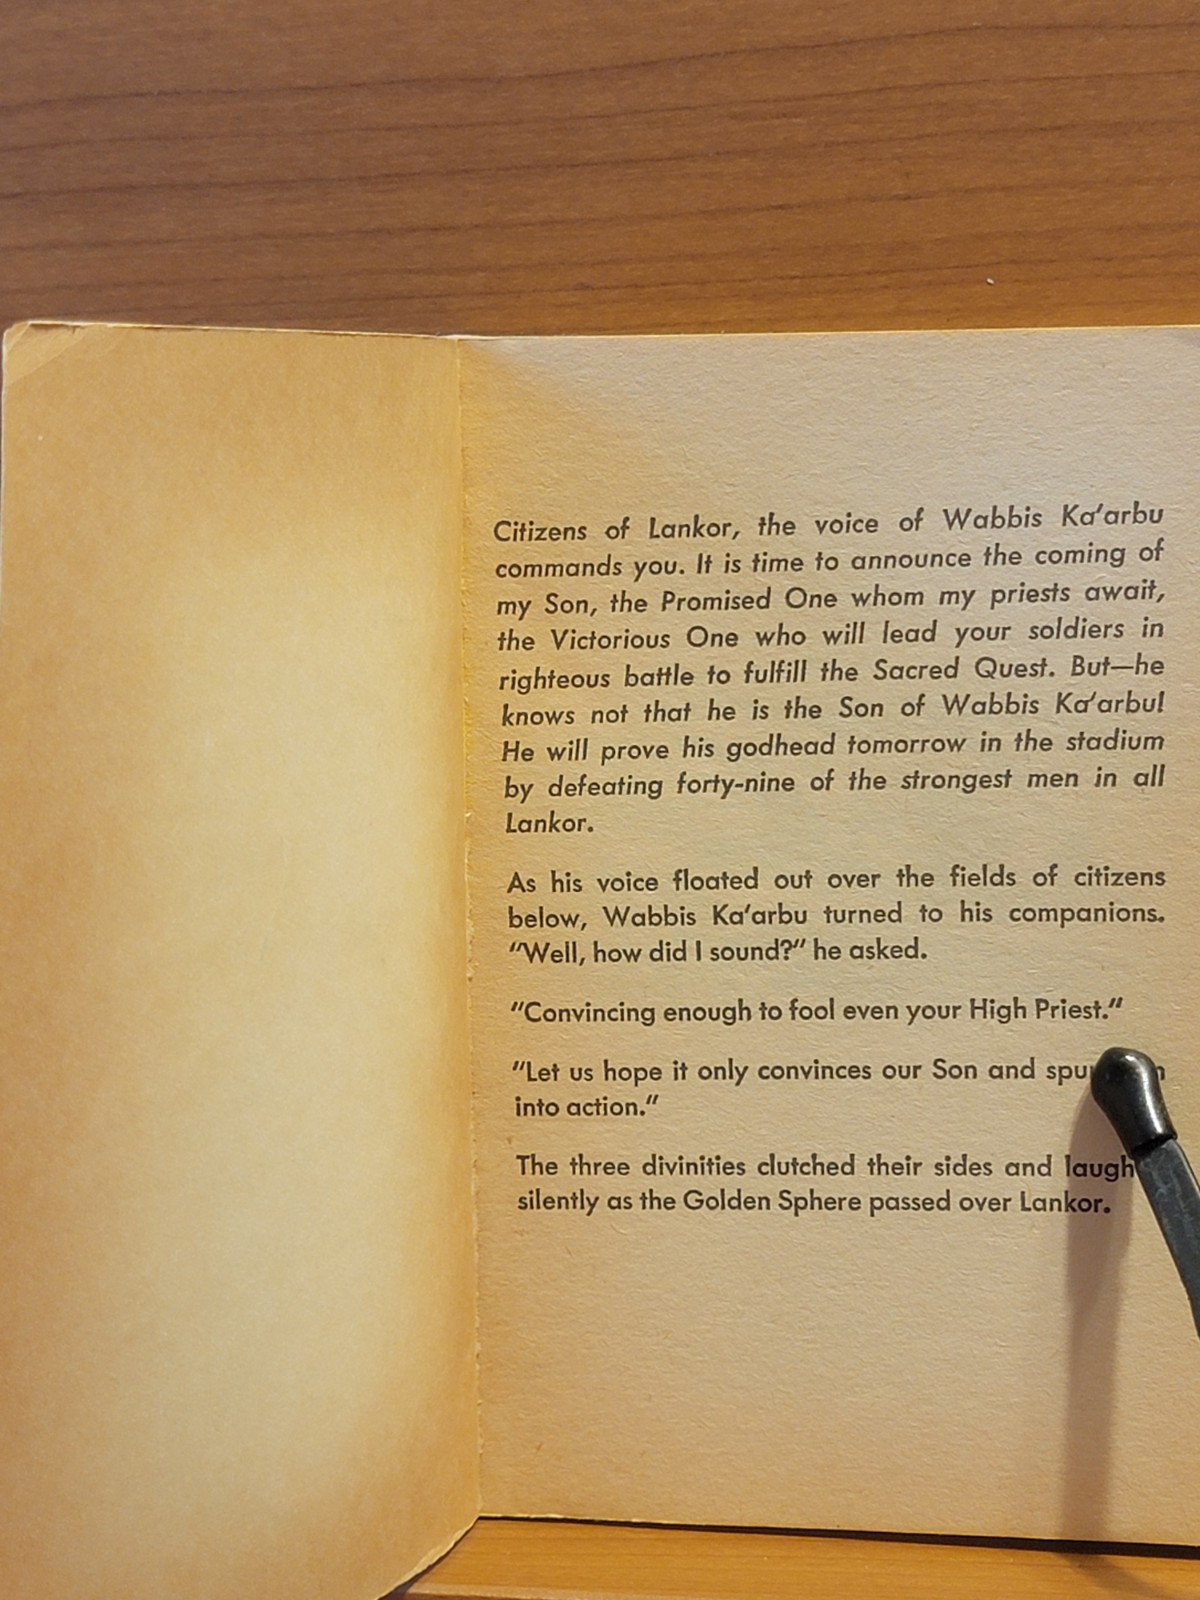 Citizens of Lankor, the voice of Wabbis Ka'arbu
commands you. It is time to announce the coming of
my Son, the Promised One whom my priests await,
the Victorious One who will lead your soldiers in
righteous battle to fulfill the Sacred Quest. But—he
knows not that he is the Son of Wabbis Ka'arbu!
He will prove his godhead tomorrow in the stadium
by defeating forty-nine of the strongest men in all
Lankor.
As his voice floated out over the fields of citizens
below, Wabbis Ka'arbu turned to his companions.
"Well, how did I sound?" he asked.
"Convincing enough to fool even your High Priest."
"Let us hope it only convinces our Son and
into action."
The three divinities clutched their sides and
silently as the Golden Sphere passed over Lankor.